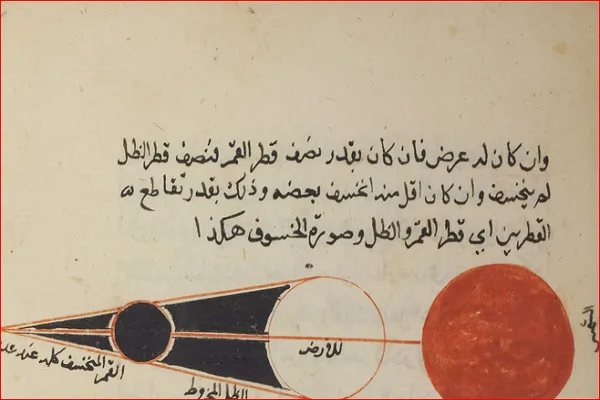 وان كان له عرض فان كان بقدر نصف قطر القمر فنصف قطر الظل
لم ينخسف وان كان اقل منه انخسف بعضه وذلك بقدر تقاطع
القطرين اي قطر القمر والظل وصورة الخسوف هكذا
الشمس
للارض
القمر المنخسف كله عند
الظل المخروط